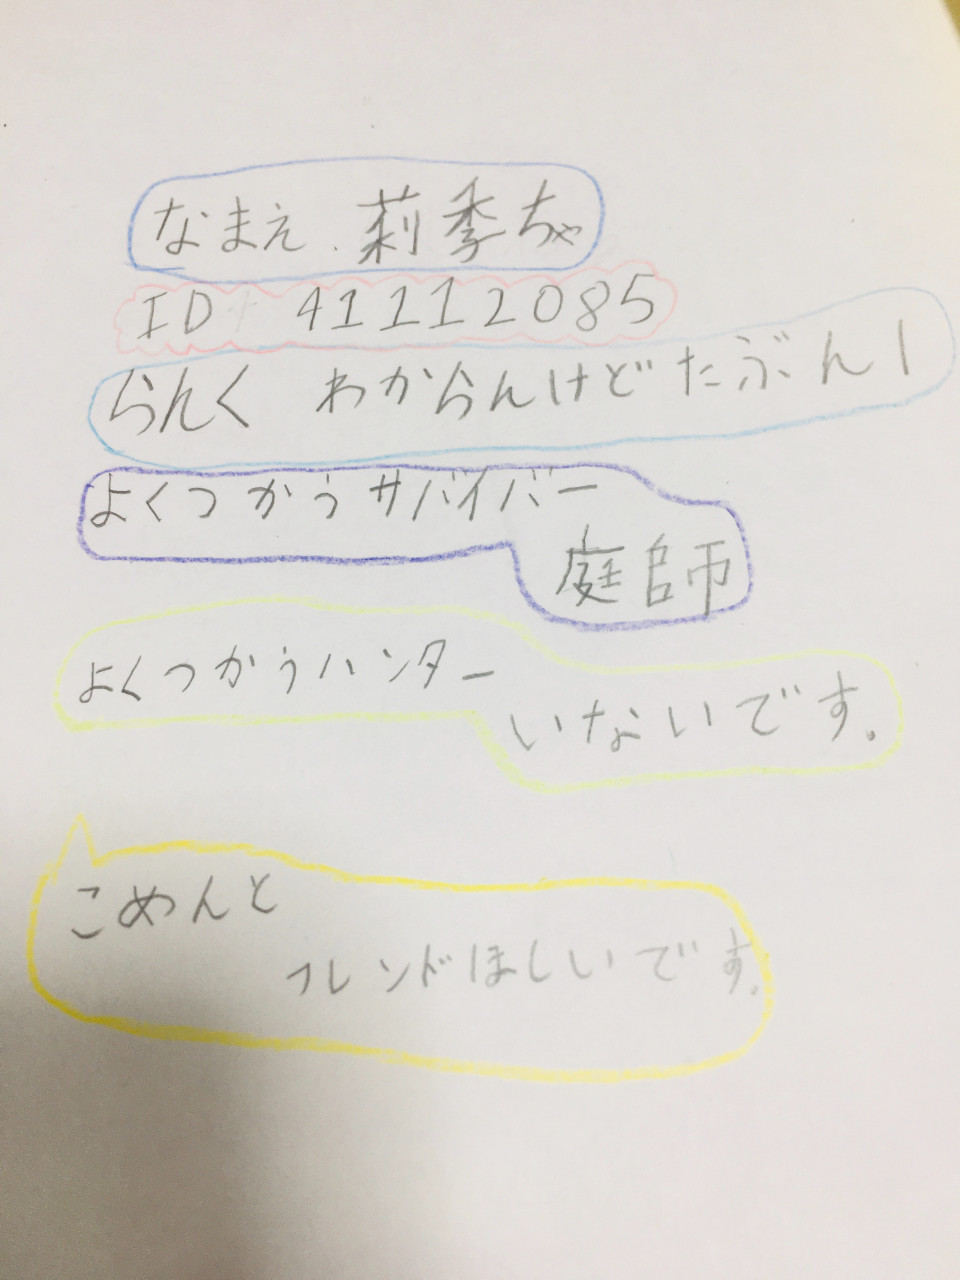 なまえ 莉季ちゃ
ID 41112085
らんく わからんけどたぶん1
よくつかうサバイバー
庭師
よくつかうハンター
いないです。
こめんと
フレンドほしいです。